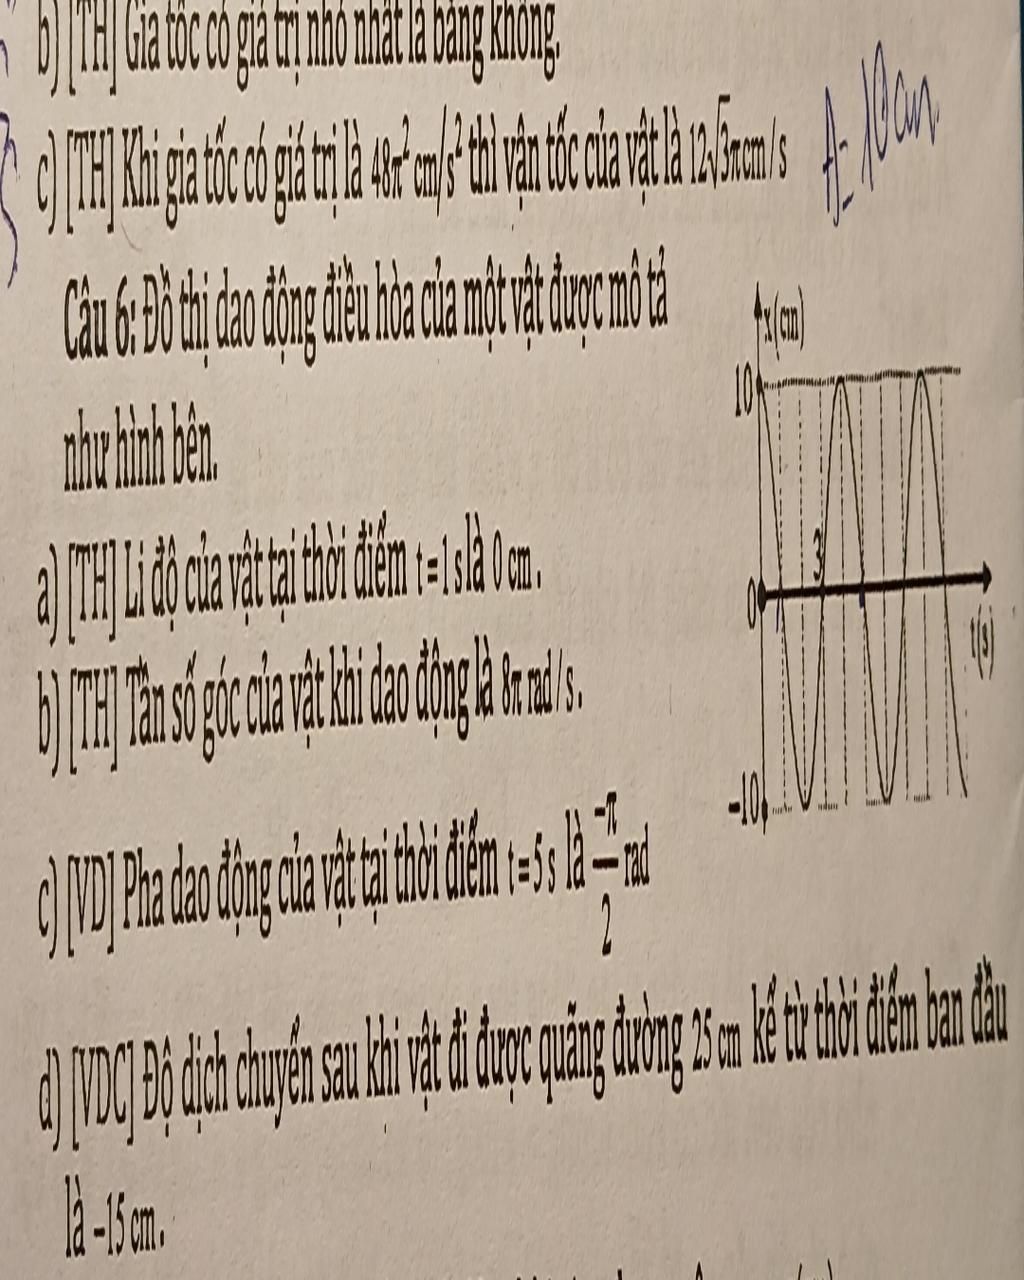 b) [TH] Gia tốc có giá trị nhỏ nhất là bằng không.
c) [TH] Khi gia tốc có giá trị là 48π² cm/s² thì vận tốc của vật là 12√3πcm/s
A = 10 cm
Câu 6: Đồ thị dao động điều hòa của một vật được mô tả
như hình bên.
x(cm)
10
3
0
t(s)
-10
a) [TH] Li độ của vật tại thời điểm t=1s là 0 cm.
b) [TH] Tần số góc của vật khi dao động là 8π rad/s.
c) [VD] Pha dao động của vật tại thời điểm t=5s là -π/2 rad
d) [VDC] Độ dịch chuyển sau khi vật đi được quãng đường 25 cm kể từ thời điểm ban đầu
là -15 cm.